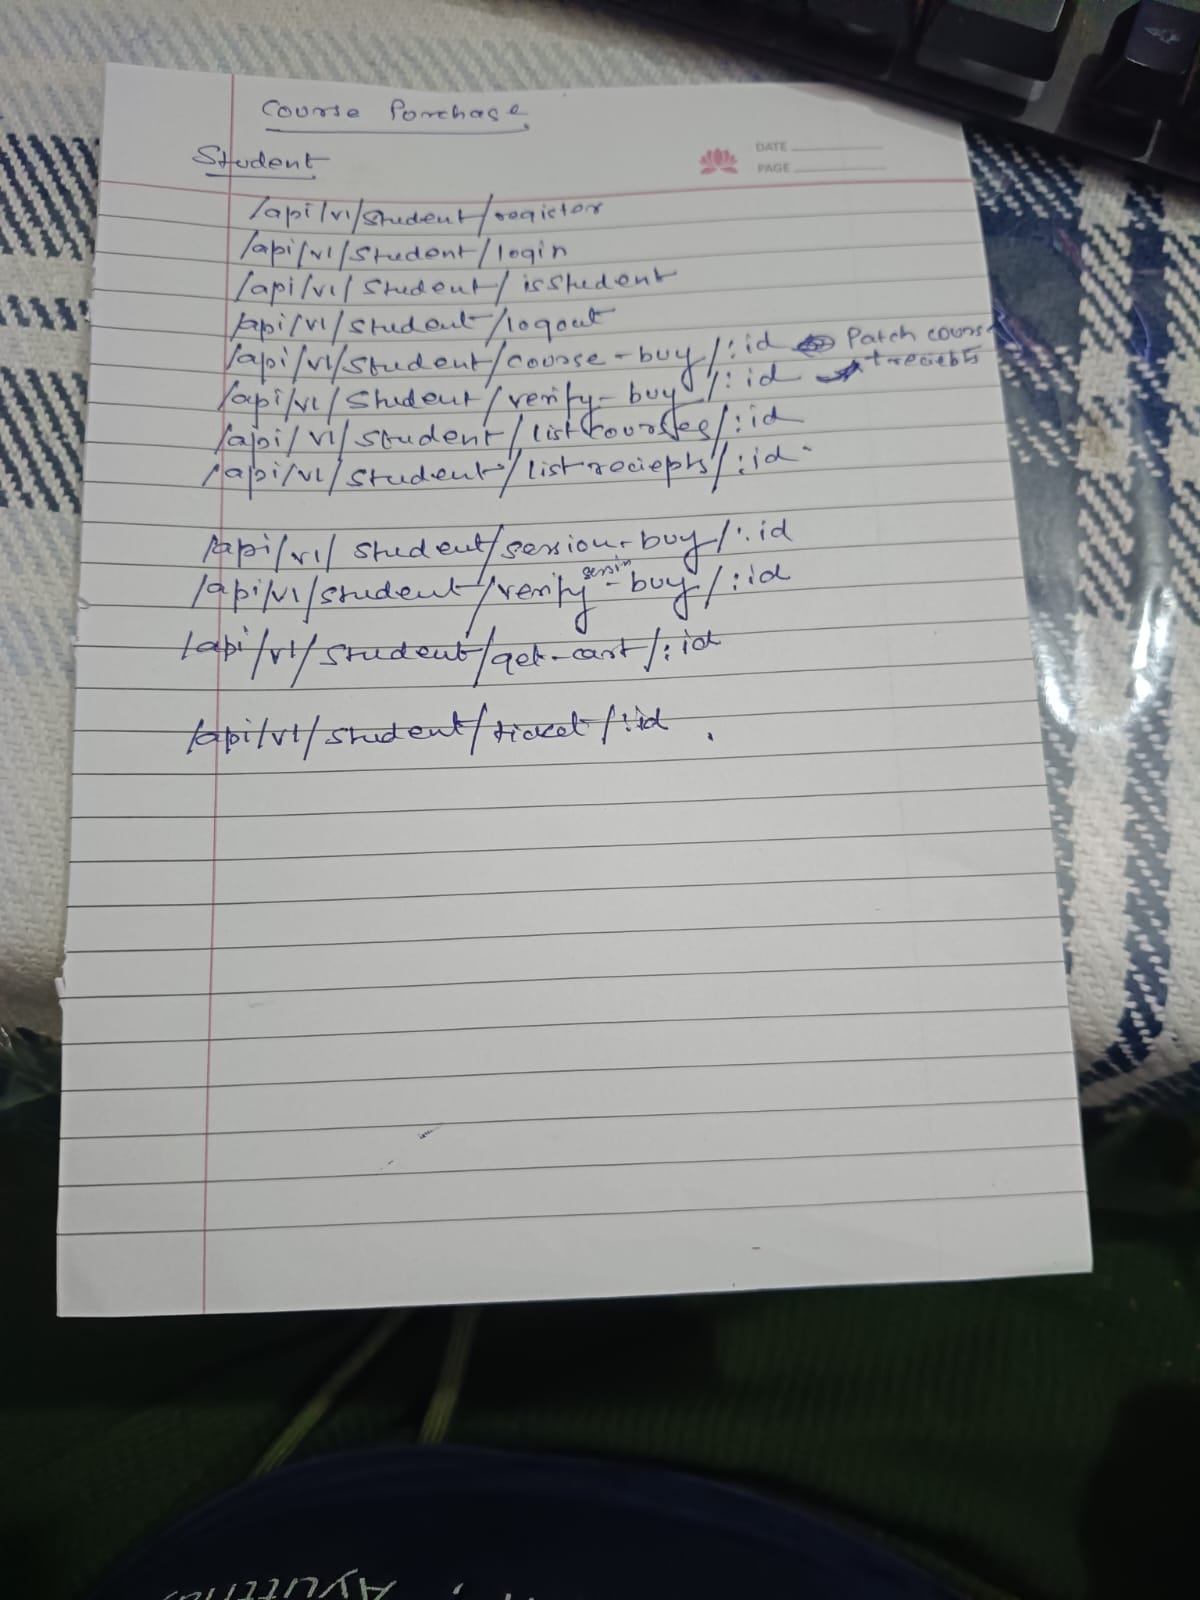 Course Porchase
Student
DATE
PAGE
/api/v1/student/register
/api/v1/student/login
/api/v1/student/isstudent
/api/v1/student/logout
/api/v1/student/course-buy/:id Patch course
/api/v1/student/verify-buy/:id + reciebts
/api/v1/student/listcourses/:id
/api/v1/student/listreciepts/:id
/api/v1/student/session-buy/:id
/api/v1/student/verify-buy/:id
/api/v1/student/get-cart/:id
/api/v1/student/ticket/:id